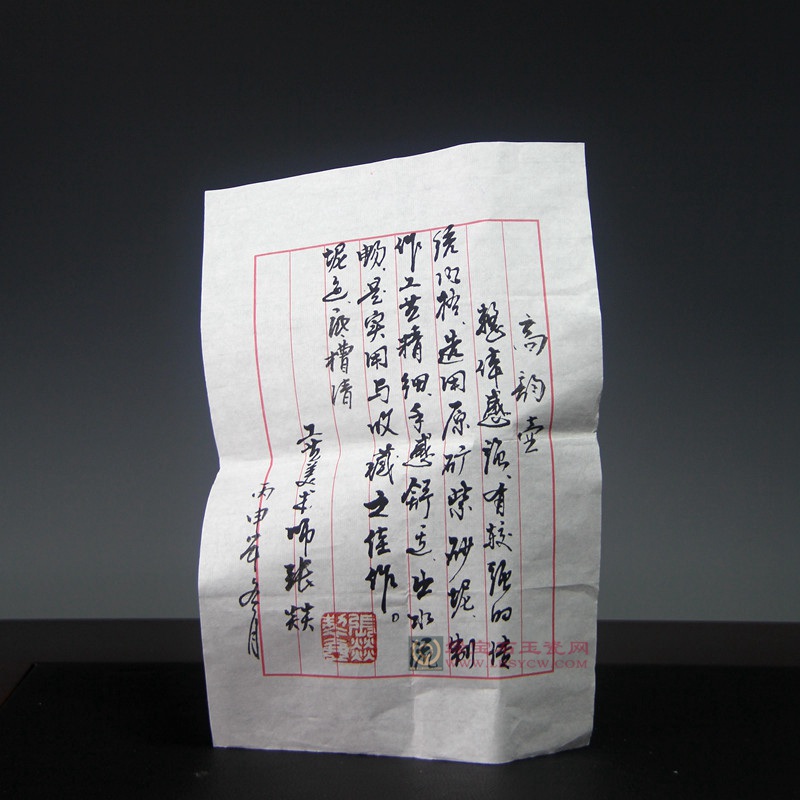 高韵壶
整体感强、有较强的传
统风格、选用原矿紫砂泥、制
作工艺精细、手感舒适、出水
畅、是实用与收藏之佳作。
泥色、底槽清
工艺美术师 张燚
丙申年冬月
WWW.CBSYCW.COM